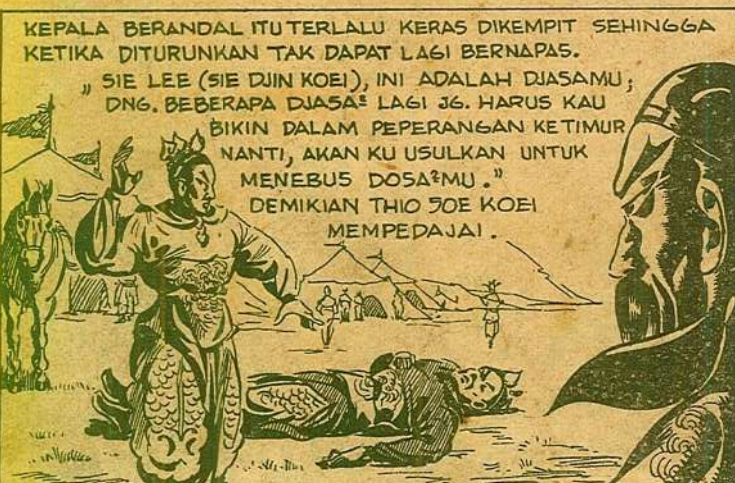 KEPALA BERANDAL ITU TERLALU KERAS DIKEMPIT SEHINGGA
KETIKA DITURUNKAN TAK DAPAT LAGI BERNAPAS.
„ SIE LEE (SIE DJIN KOEI), INI ADALAH DJASAMU;
DNG. BEBERAPA DJASA² LAGI JG. HARUS KAU
BIKIN DALAM PEPERANGAN KETIMUR
NANTI, AKAN KU USULKAN UNTUK
MENEBUS DOSA²MU."
DEMIKIAN THIO SOE KOEI
MEMPEDAJAI.